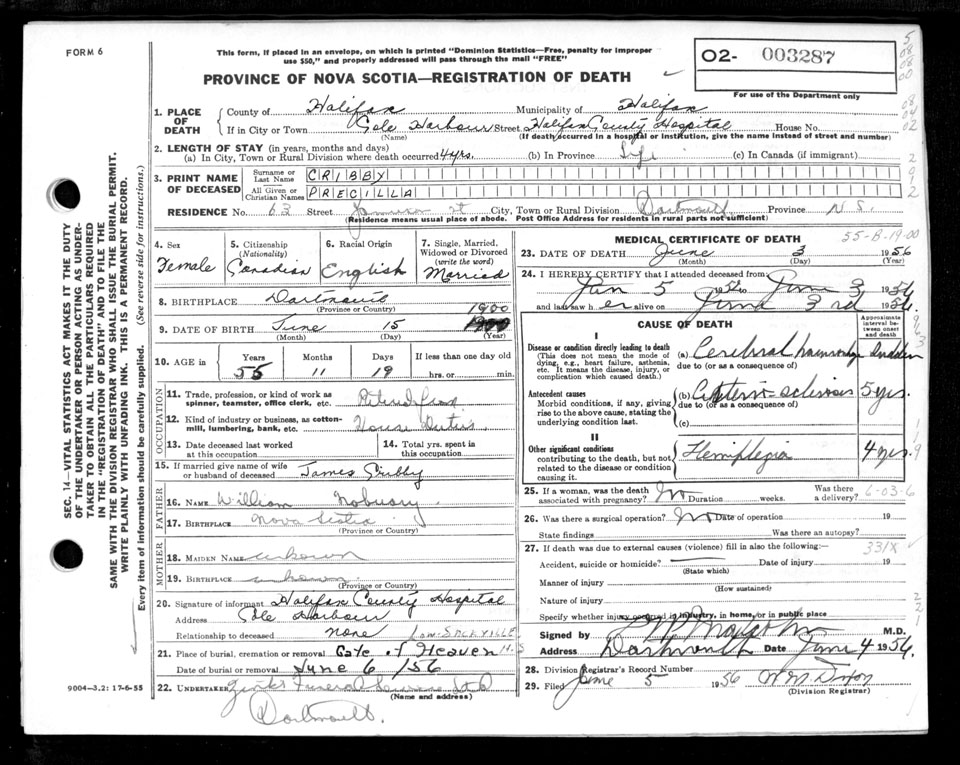 FORM 6
This form, if placed in an envelope, on which is printed "Dominion Statistics—Free, penalty for improper
use $50," and properly addressed will pass through the mail "FREE"
O2- 003287
For use of the Department only
PROVINCE OF NOVA SCOTIA—REGISTRATION OF DEATH
1. PLACE OF DEATH
County of Halifax Municipality of Halifax
If in City or Town Cole Harbour Street Halifax County Hospital House No.
(Name) (If death occurred in a hospital or institution, give the name instead of street and number)
2. LENGTH OF STAY (in years, months and days)
(a) In City, Town or Rural Division where death occurred 4 yrs. (b) In Province Life (c) In Canada (if immigrant)
3. PRINT NAME OF DECEASED
Surname or Last Name CRIBBY
All Given or Christian Names PRECILLA
RESIDENCE No. 63 Street Jamieson St City, Town or Rural Division Dartmouth Province N.S.
(Residence means usual place of abode. Post Office Address for residents in rural parts not sufficient)
4. Sex Female
5. Citizenship (Nationality) Canadian
6. Racial Origin English
7. Single, Married, Widowed or Divorced (write the word) Married
8. BIRTHPLACE Dartmouth
(Province or Country)
1900
9. DATE OF BIRTH June 15
(Month) (Day) (Year)
10. AGE in Years Months Days If less than one day old
55 11 19 hrs. or min.
OCCUPATION
11. Trade, profession, or kind of work as spinner, teamster, office clerk, etc.
12. Kind of industry or business, as cotton-mill, lumbering, bank, etc. House Duties
13. Date deceased last worked at this occupation
14. Total yrs. spent in this occupation
15. If married give name of wife or husband of deceased James Cribby
FATHER
16. NAME William
17. BIRTHPLACE Nova Scotia
(Province or Country)
MOTHER
18. MAIDEN NAME unknown
19. BIRTHPLACE unknown
(Province or Country)
20. Signature of informant Halifax County Hospital
Address Cole Harbour
Relationship to deceased none
LOW. SACKVILLE
21. Place of burial, cremation or removal Gate of Heaven N.S
Date of burial or removal June 6/56
22. UNDERTAKER Zinks Funeral Service Ltd
(Name and address)
Dartmouth.
9004—3.2: 17-6-55
MEDICAL CERTIFICATE OF DEATH
55-B-19-00
23. DATE OF DEATH June 3 1956
(Month) (Day) (Year)
24. I HEREBY CERTIFY that I attended deceased from
Jan 5 1956 to June 3 1956
and last saw her alive on June 3rd 1956.
CAUSE OF DEATH
Approximate interval between onset and death
I
Disease or condition directly leading to death
(This does not mean the mode of dying, e.g., heart failure, asthenia, etc. It means the disease, injury, or complication which caused death.)
(a) Cerebral haemorrhage Sudden
due to (or as a consequence of)
Antecedent causes
Morbid conditions, if any, giving rise to the above cause, stating the underlying condition last.
(b) Arterio-sclerosis 5 yrs.
due to (or as a consequence of)
(c)
II
Other significant conditions
contributing to the death, but not related to the disease or condition causing it.
Hemiplegia 4 yrs.
25. If a woman, was the death associated with pregnancy? No Duration weeks. Was there a delivery?
6-03-6
26. Was there a surgical operation? No Date of operation 19
State findings Was there an autopsy?
27. If death was due to external causes (violence) fill in also the following:—
331X
Accident, suicide or homicide? Date of injury 19
(State which)
Manner of injury
(How sustained)
Nature of injury
Specify whether injury occurred in industry, in home, or in public place
Signed by M.D.
Dartmouth Date June 4 1956.
28. Division Registrar's Record Number
29. Filed June 5 1956
(Division Registrar)
SEC. 14—VITAL STATISTICS ACT MAKES IT THE DUTY
OF THE UNDERTAKER OR PERSON ACTING AS UNDER-
TAKER TO OBTAIN ALL THE PARTICULARS REQUIRED
IN THE "REGISTRATION OF DEATH" AND TO FILE THE
SAME WITH THE DIVISION REGISTRAR WHO SHALL ISSUE THE BURIAL PERMIT.
WRITE PLAINLY WITH UNFADING INK. THIS IS A PERMANENT RECORD.
Every item of information should be carefully supplied. (See reverse side for instructions.)